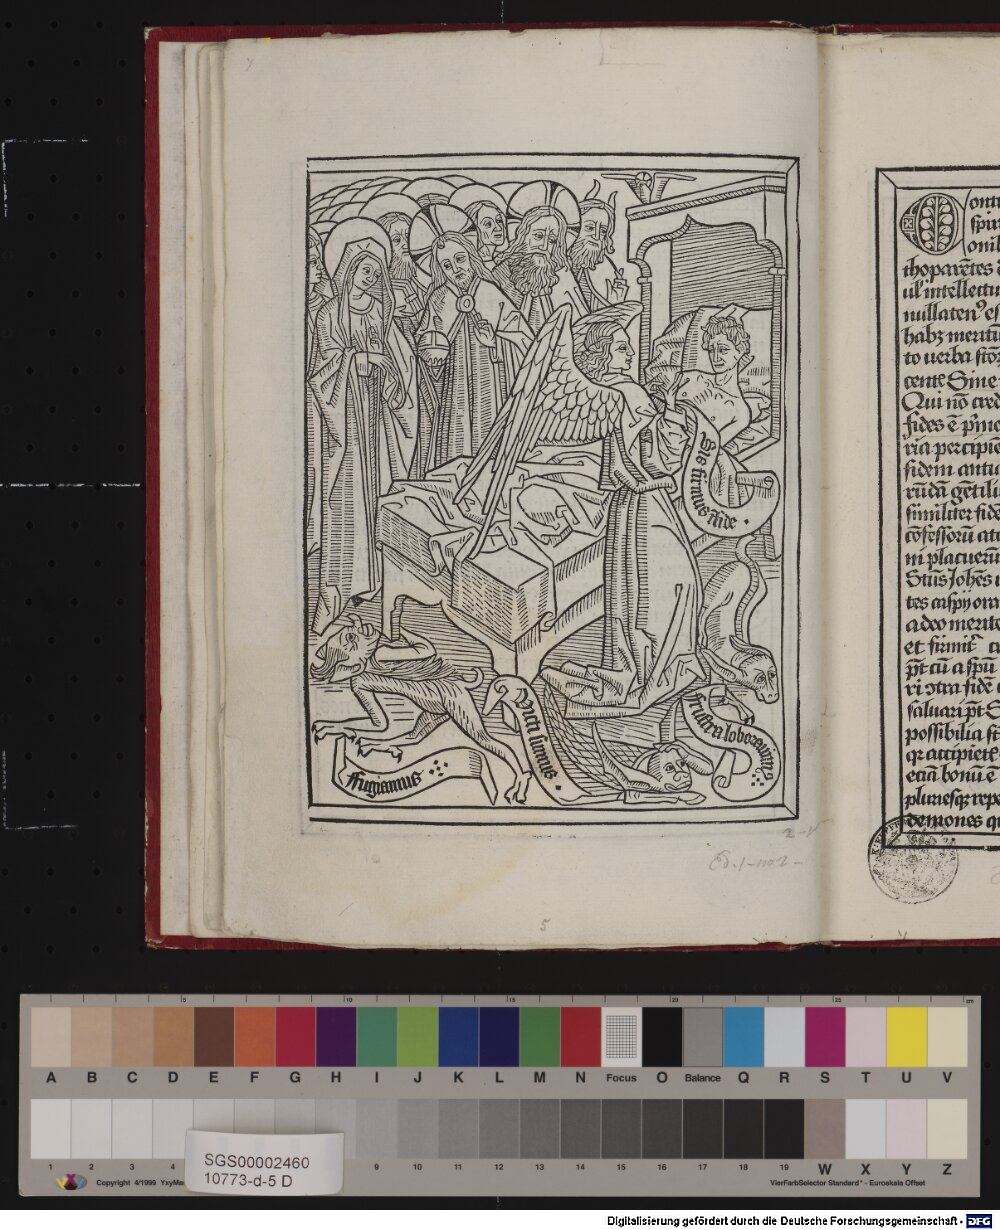 Sis firmus in fide
ffugiamus
Victi sumus
frustra laboravimus
Ed. 1 - no 2 -
5
spiri
onib
thoparētes
ul' intellectu
nullaten⁹ es
habꝫ meritu
to uerba
centē Sine
Qui nō cred
fides ē
ria percipie
fidem antiu
rūdā gētiliū
similiter fide
cōfessorū
ni placuerū
Stūs Johēs
tes caspij ora
adeo merite
et firmit
saluari pt
possibilia
qꝛ accipiete
etiā bonū ē
pluriesqꝫ repe
demones qu
5 10 15 20 25 cm
A B C D E F G H I J K L M N Focus O Balance Q R S T U V
1 2 3 4 9 10 11 12 13 14 15 16 17 18 19 W X Y Z
SGS00002460
10773-d-5 D
Copyright 4/1999 YxyMa
VierFarbSelector Standard* - Euroskala Offset
Digitalisierung gefördert durch die Deutsche Forschungsgemeinschaft - DFG